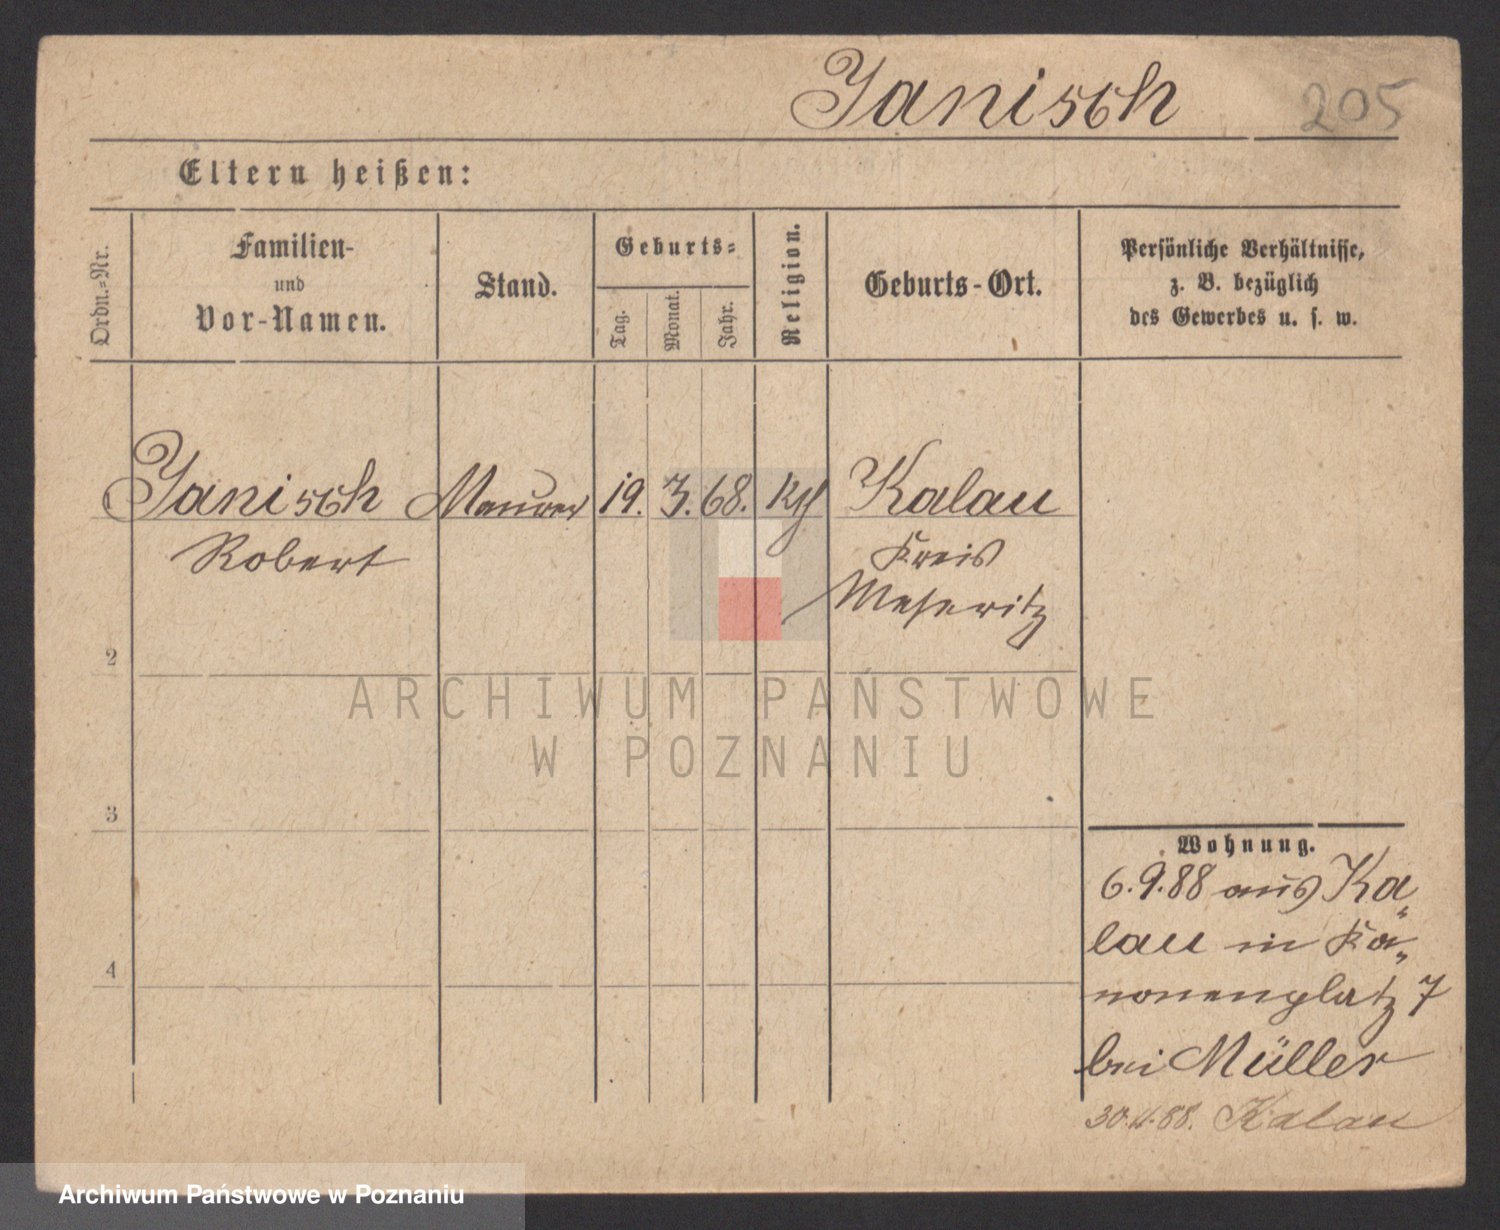 Janisch 205
Eltern heißen:
Ordn.-Nr.
Familien-
und
Vor-Namen.
Stand.
Geburts-
Tag.
Monat.
Jahr.
Religion.
Geburts-Ort.
Persönliche Verhältnisse,
z. B. bezüglich
des Gewerbes u. s. w.
Janisch Maurer 19. 3. 68. kth Kalau
Robert Kreis
Meseritz
2
3
4
ARCHIWUM PAŃSTWOWE
W POZNANIU
Wohnung.
6.9.88 aus Ka„
lau in Ka„
nonenplatz 7
bei Müller
30.11.88. Kalau
Archiwum Państwowe w Poznaniu